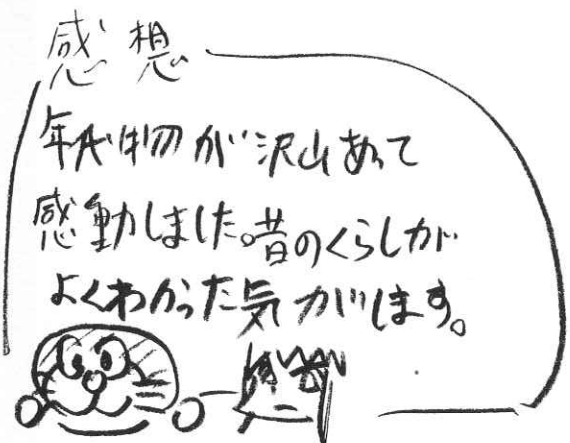 感想
年代物が沢山あって
感動しました。昔のくらしが
よくわかった気がします。